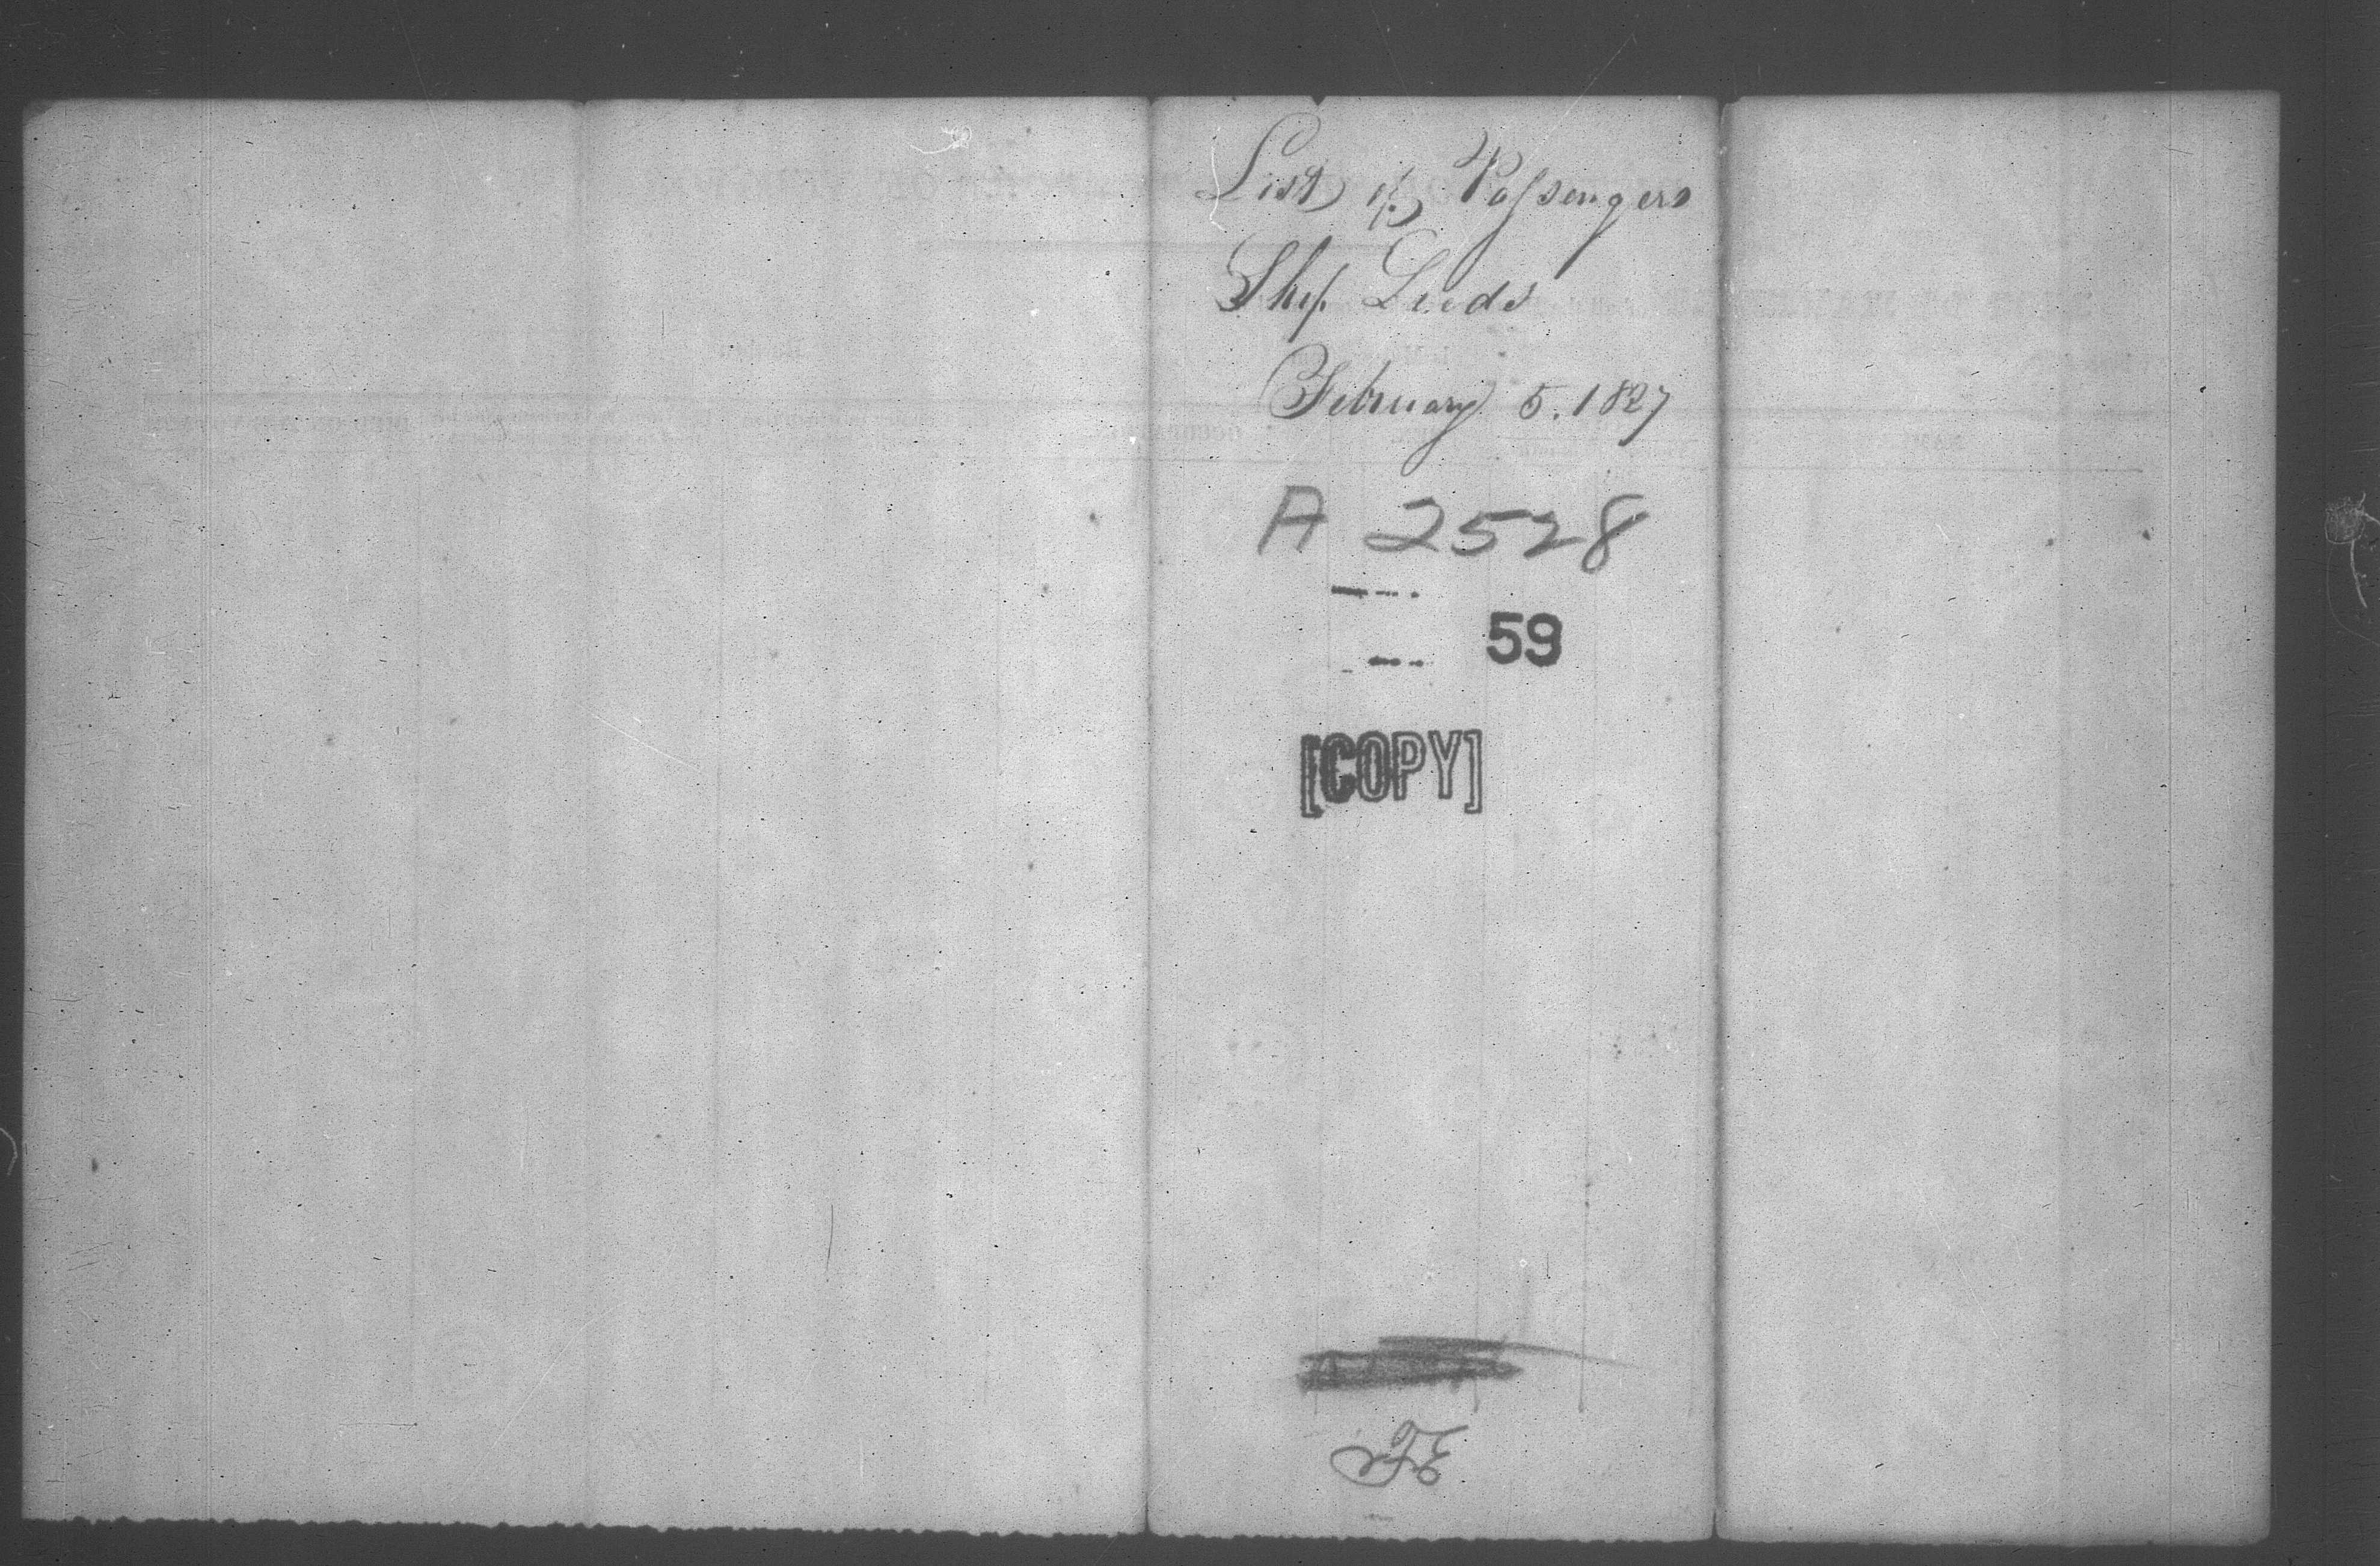 List of Passengers
Ship Leeds
February 5. 1827
A 2528
59
[COPY]